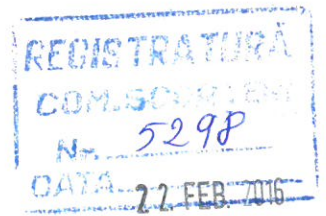 REGISTRATURĂ
COM.
Nr. 5298
DATA 22 FEB. 2016